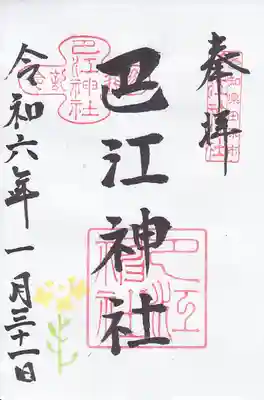 奉拝
巴江神社
令和六年一月三十一日
巴江神社